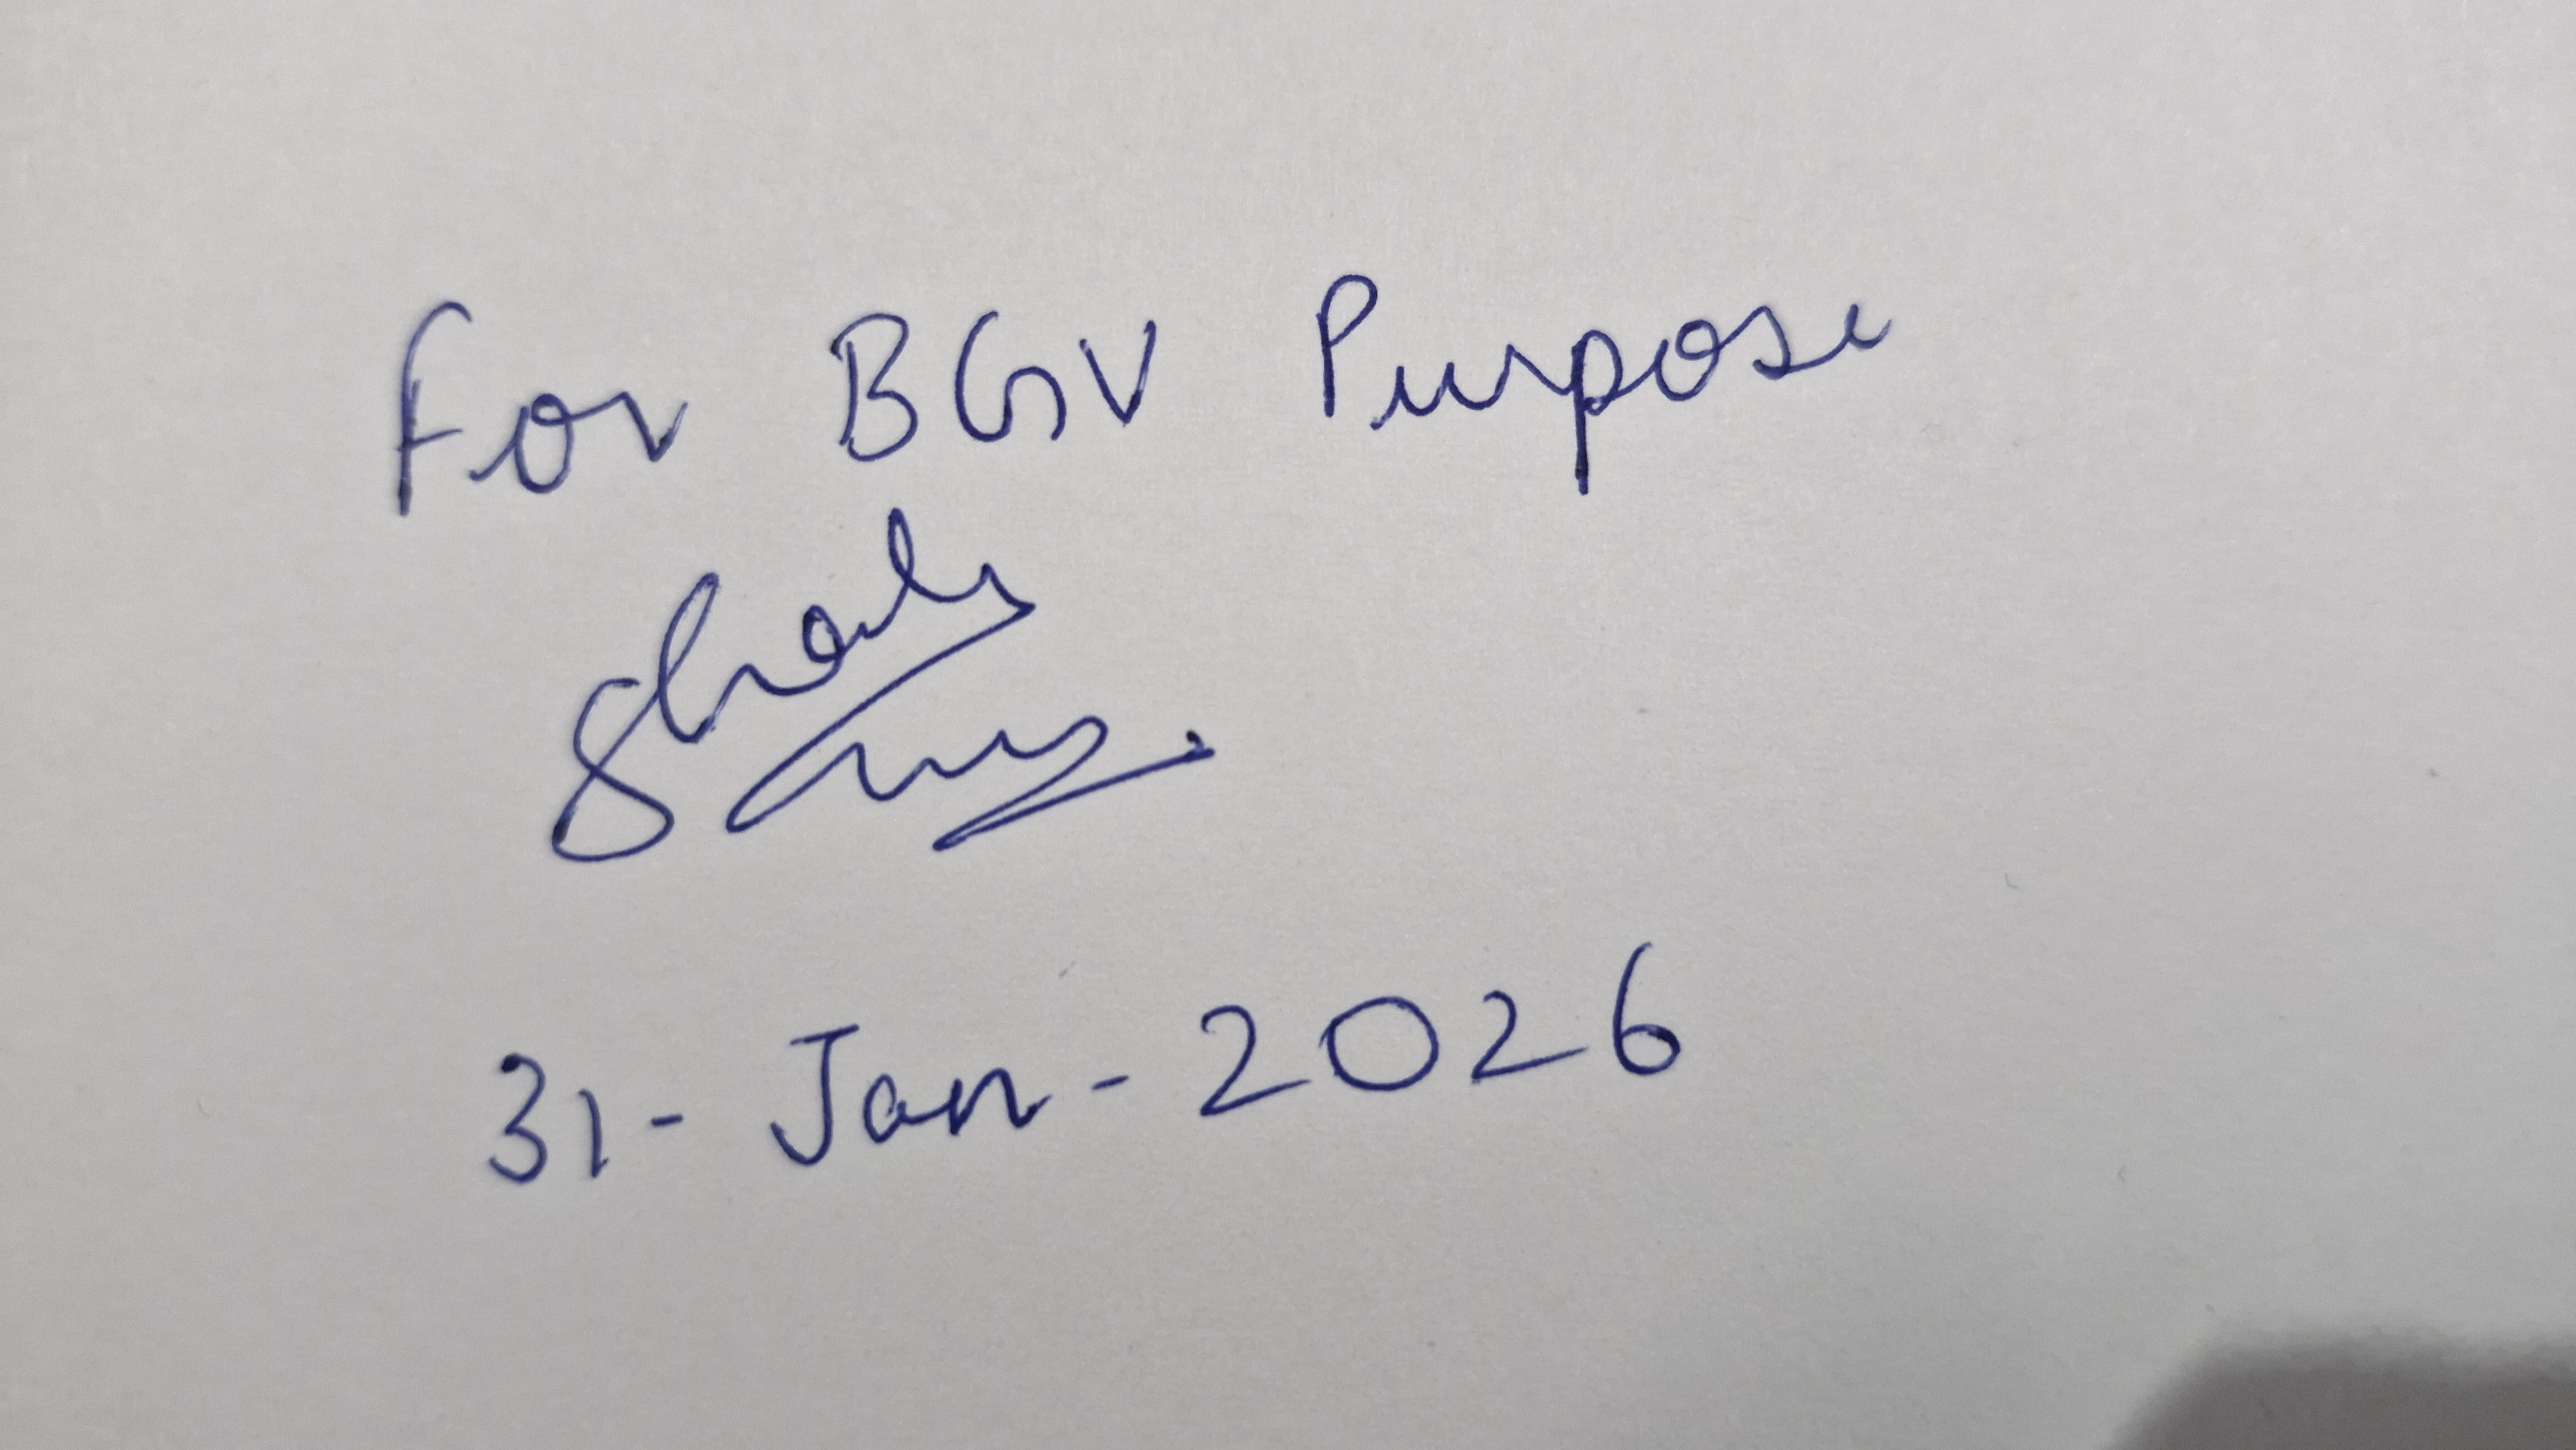 For BGV Purpose
31-Jan-2026